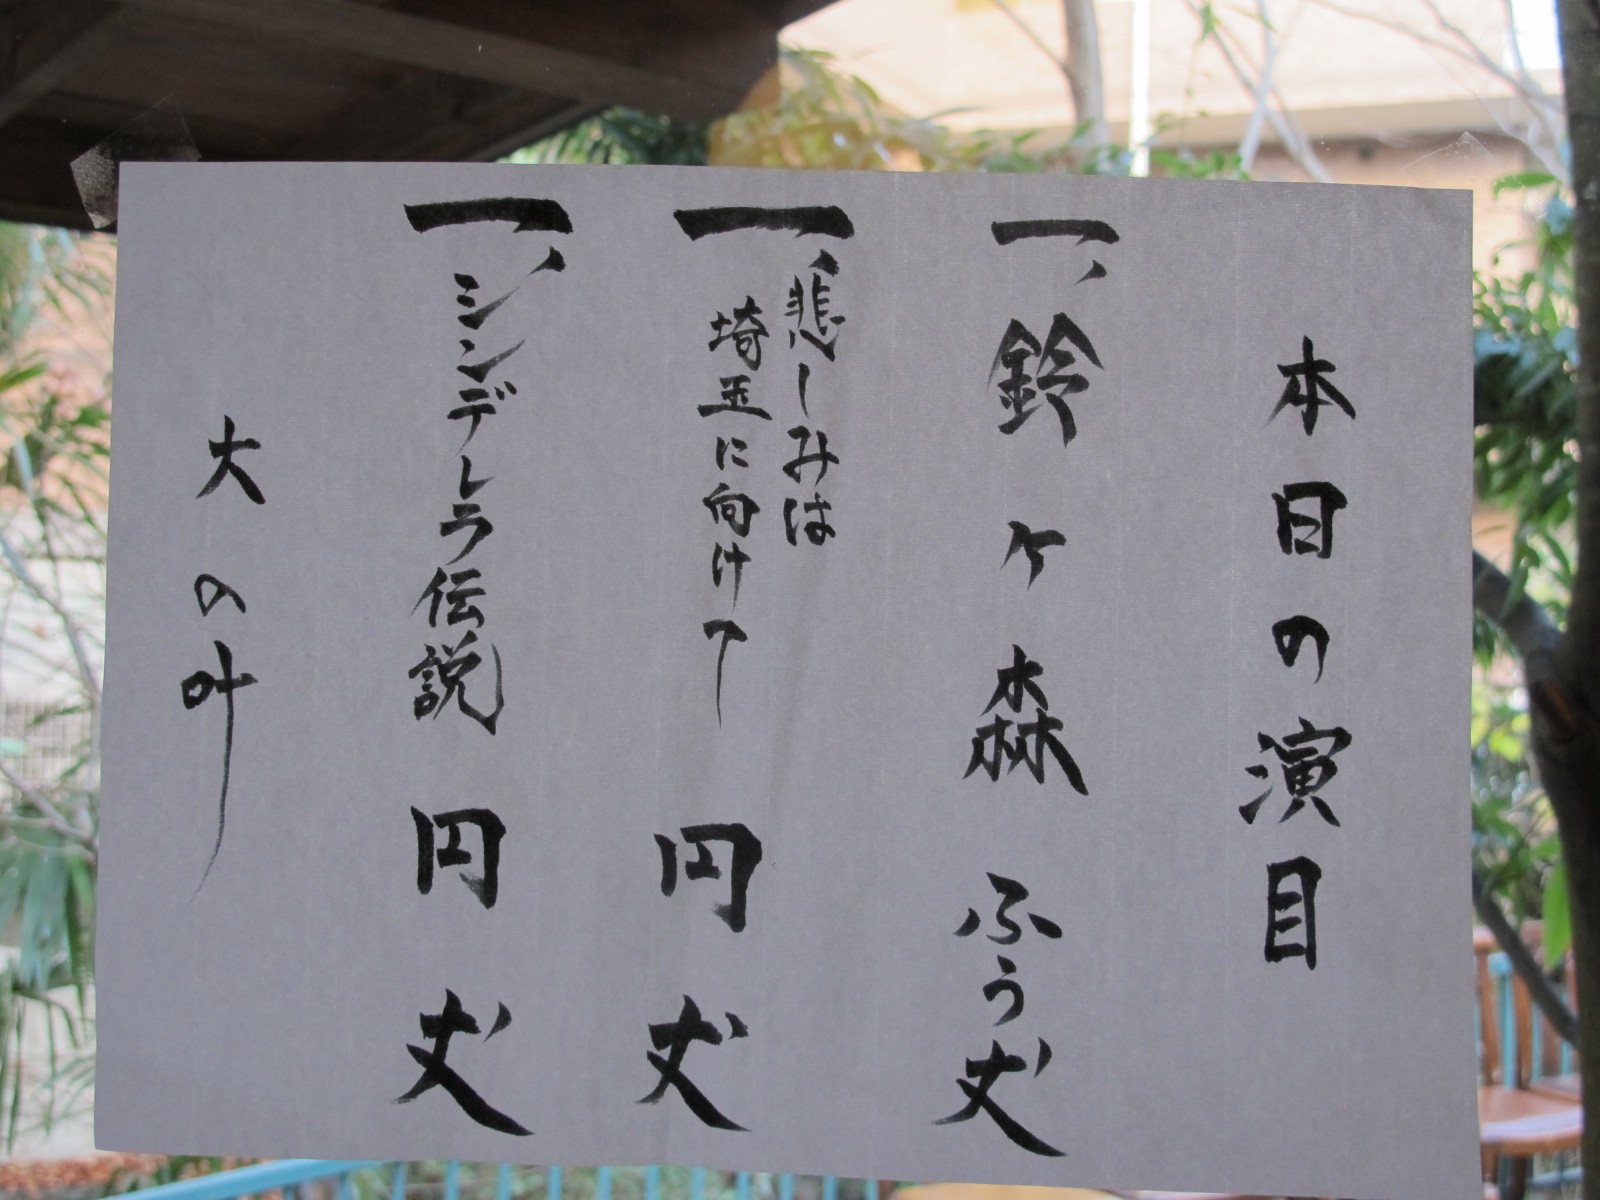 本日の演目
一、鈴ヶ森 ふう丈
一、悲しみは
埼玉に向けて 円丈
一、シンデレラ伝説 円丈
大の叶